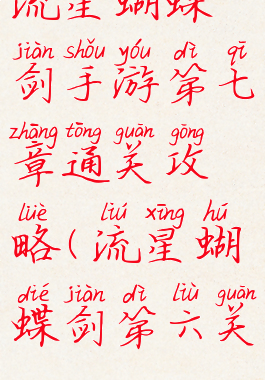 流星蝴蝶
jiàn shǒu yóu dì qī
剑手游第七
zhāng tōng guān gōng
章通关攻
lüè liú xīng hú
略(流星蝴
dié jiàn dì liù guān
蝶剑第六关